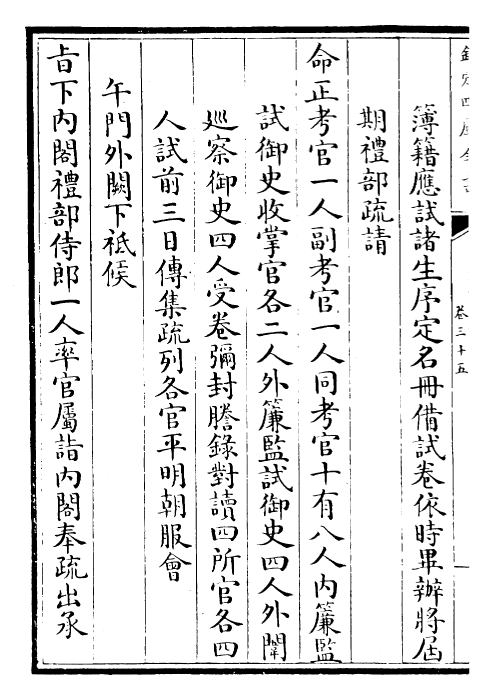 欽定四庫全書
卷三十五
簿籍應試諸生序定名冊偹試卷依時畢辦將屆
期禮部疏請
命正考官一人副考官一人同考官十有八人内簾監
試御史收掌官各二人外簾監試御史四人外闈
廵察御史四人受卷彌封謄錄對讀四所官各四
人試前三日傳集疏列各官平明朝服會
午門外闕下祗俟
㫖下内閣禮部侍郎一人率官屬詣内閣奉疏出承